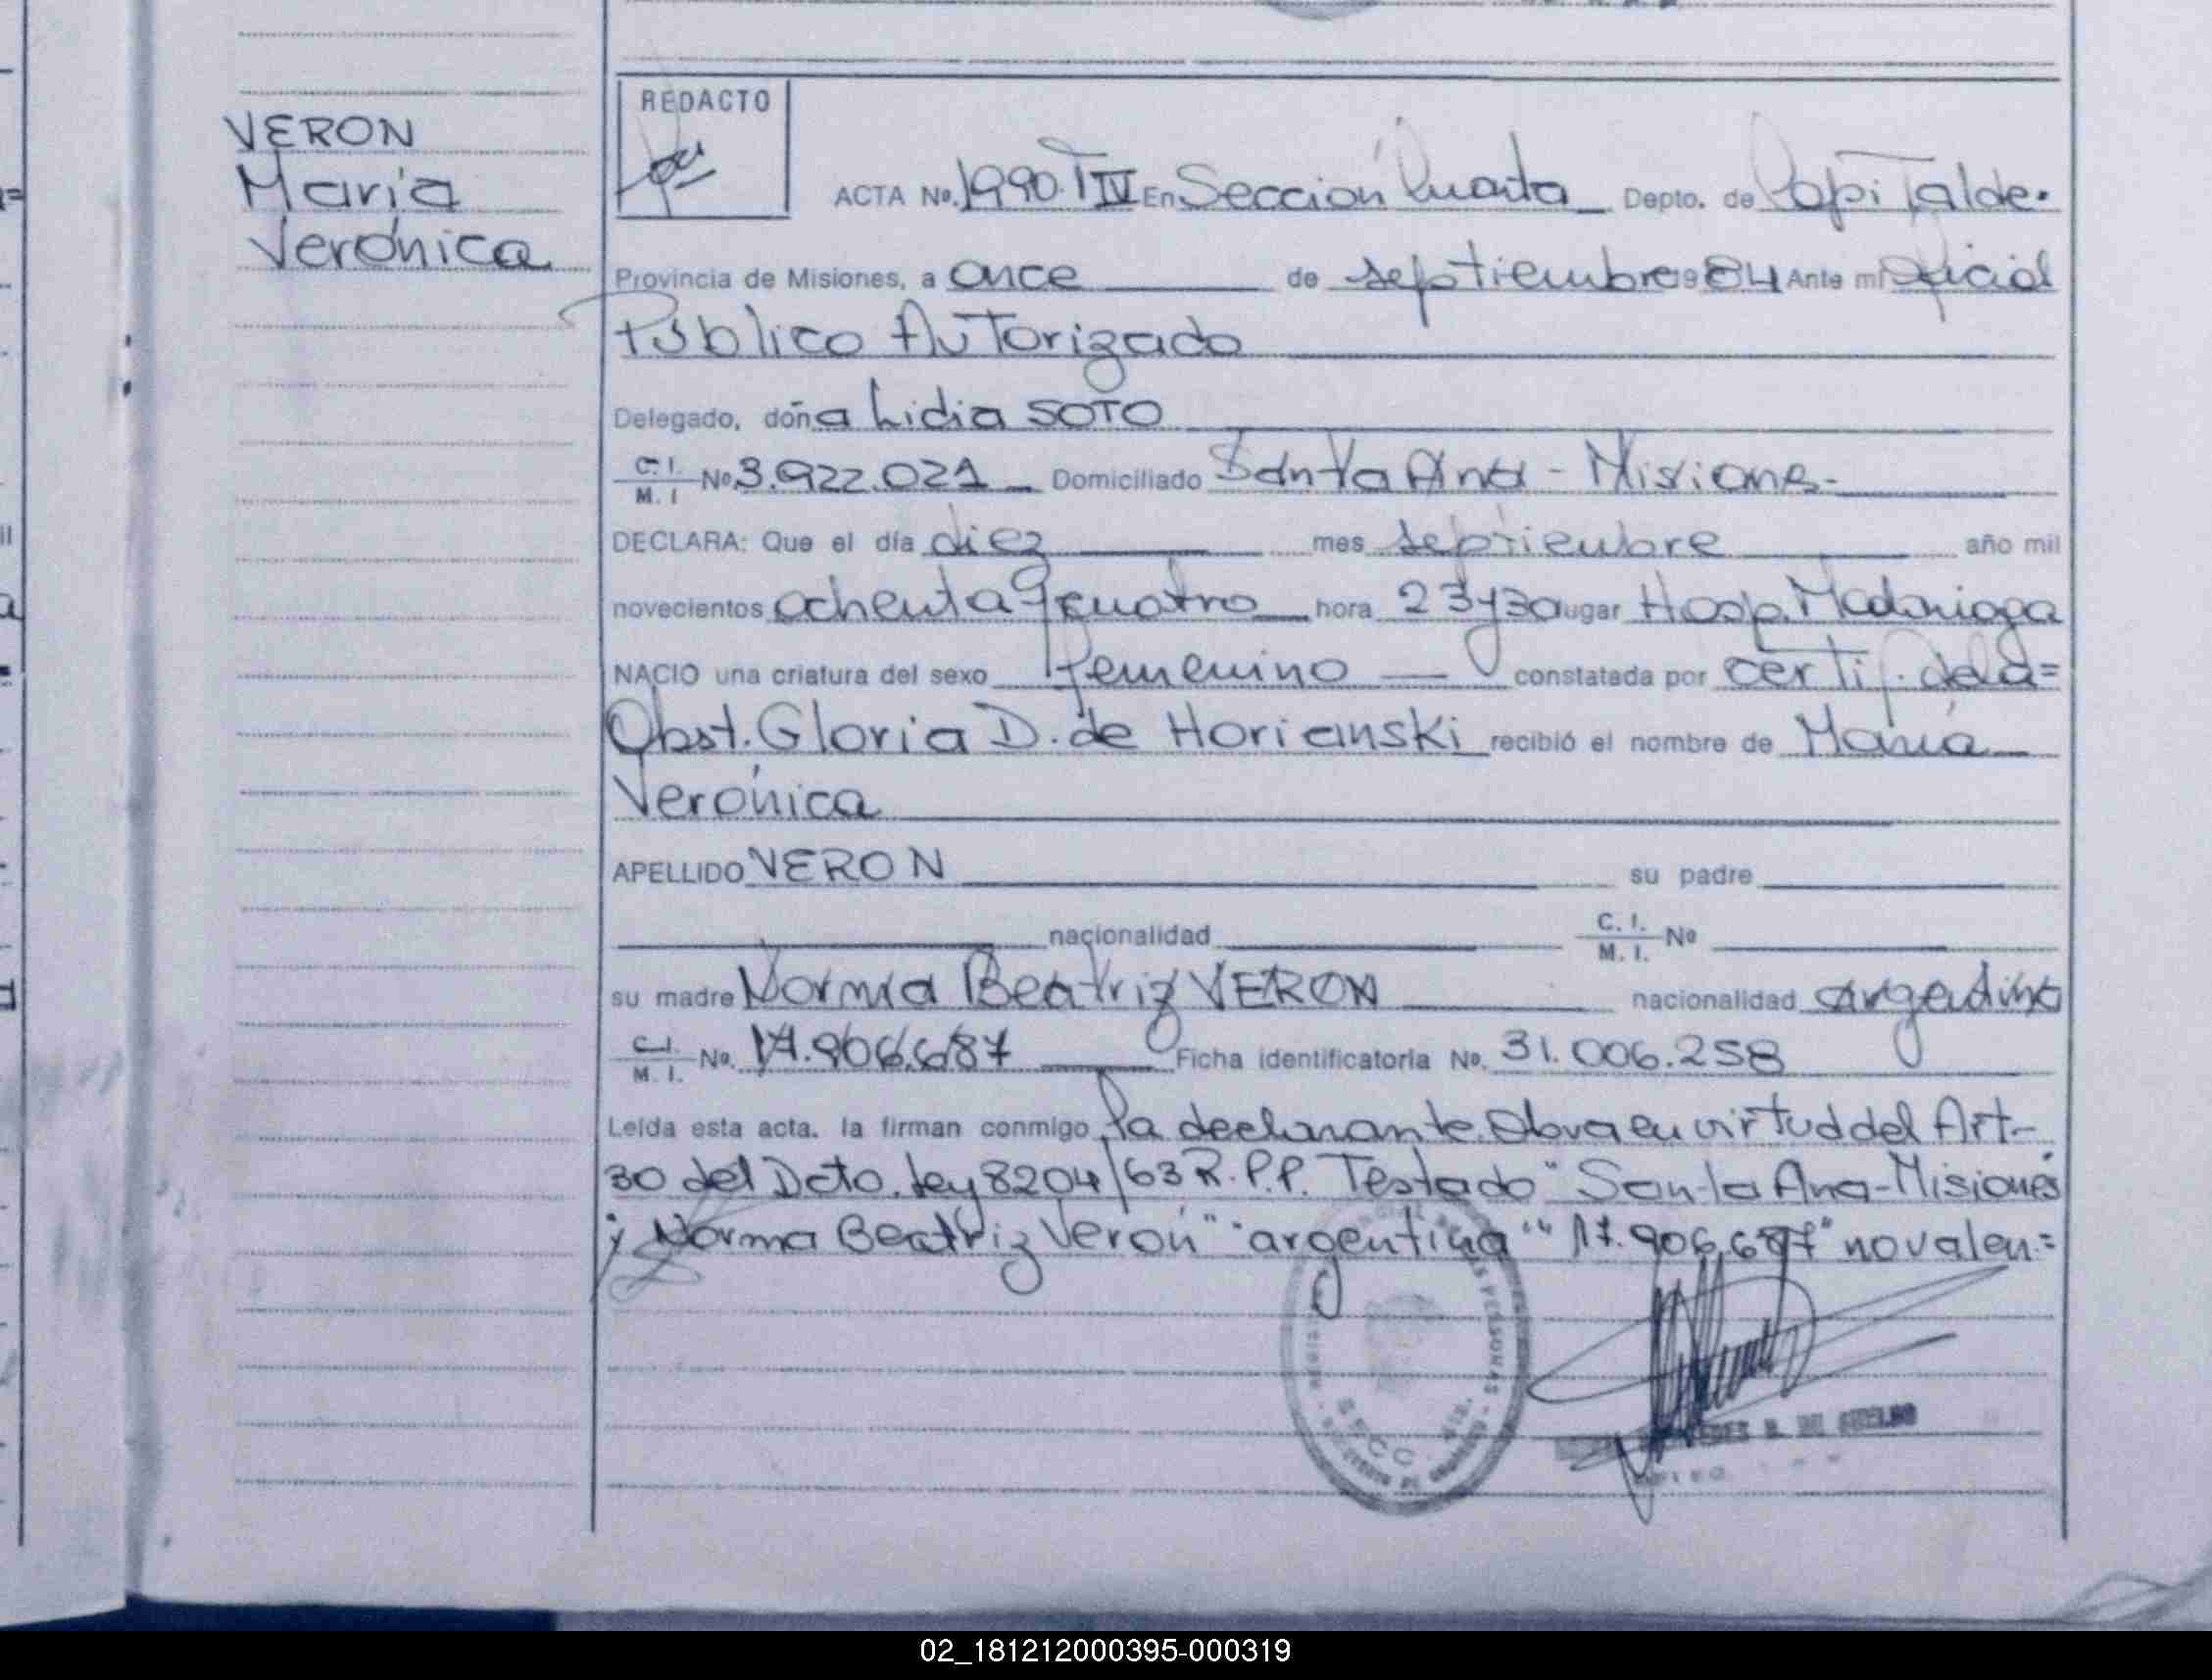 VERON
Maria
Verónica
REDACTO
ACTA No. 1990 T IV En Sección Cuarta Depto. de Capital de
Provincia de Misiones, a once de septiembre 1984 Ante mi Oficial
Público Autorizado
Delegado, doña Lidia SOTO
C.I. M.I No 3.922.021 Domiciliado Santa Ana - Misiones
DECLARA: Que el día diez mes septiembre año mil
novecientos ochenta y cuatro hora 23 y 30 lugar Hosp. Madariaga
NACIO una criatura del sexo femenino constatada por certif. de la=
Obst. Gloria D. de Horianski recibió el nombre de María
Verónica
APELLIDO VERON su padre
nacionalidad C. I. M. I. No
su madre Norma Beatriz VERON nacionalidad argentina
C.I. M. I. No. 17.906.687 Ficha identificatoria No. 31.006.258
Leída esta acta. la firman conmigo la declarante. Obra en virtud del Art-
30 del Dcto. Ley 8204/63 R.P.P. Testado "Santa Ana-Misiones
y Norma Beatriz Verón" "argentina" "17.906.687" no valen=
02_181212000395-000319